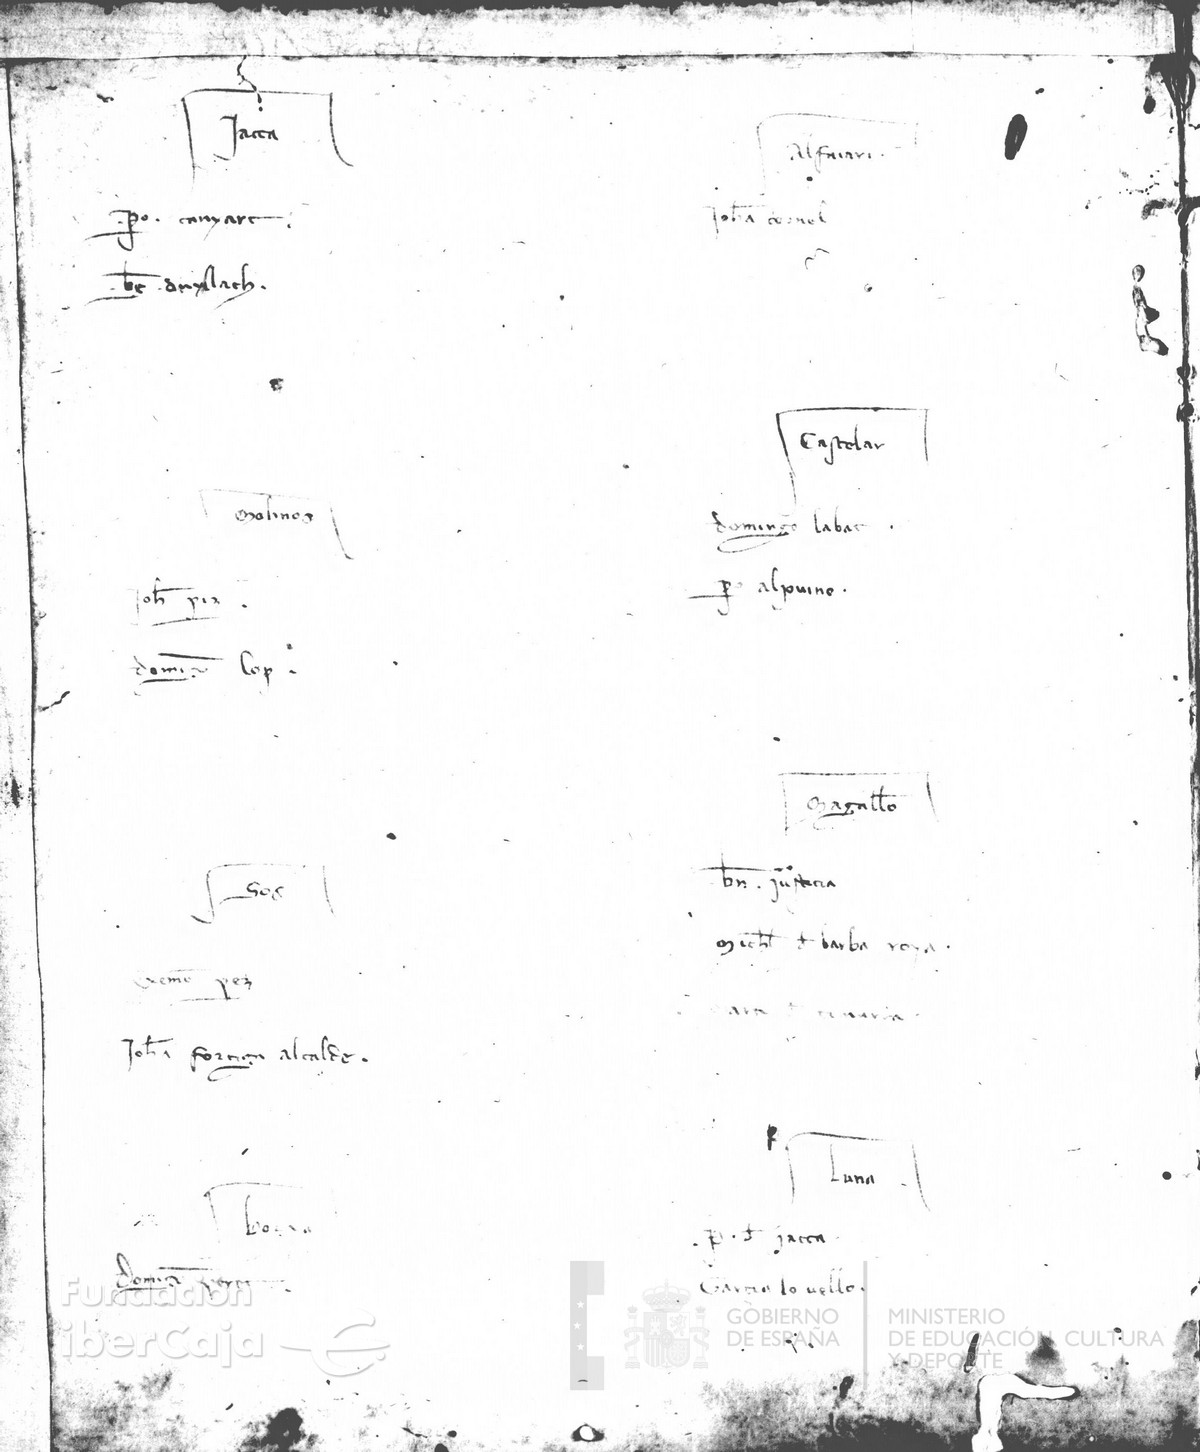 Jacca
.po. canyart.
.be. donyllach.
Molinos
Joh pix.
domīgo lop.
Sos
Exemē pez
Joha forcen alcalde.
Borja
domīgo perez
Alfaiari.
Joha cornel
Castelar
domingo labat.
p alpuine.
Magallō
.bn. justicia
Michl d barba roya.
Luna
.p. d jacca.
Garcia lo vello.
Fundación
iberCaja
GOBIERNO
DE ESPAÑA
MINISTERIO
DE EDUCACIÓN, CULTURA
Y DEPORTE